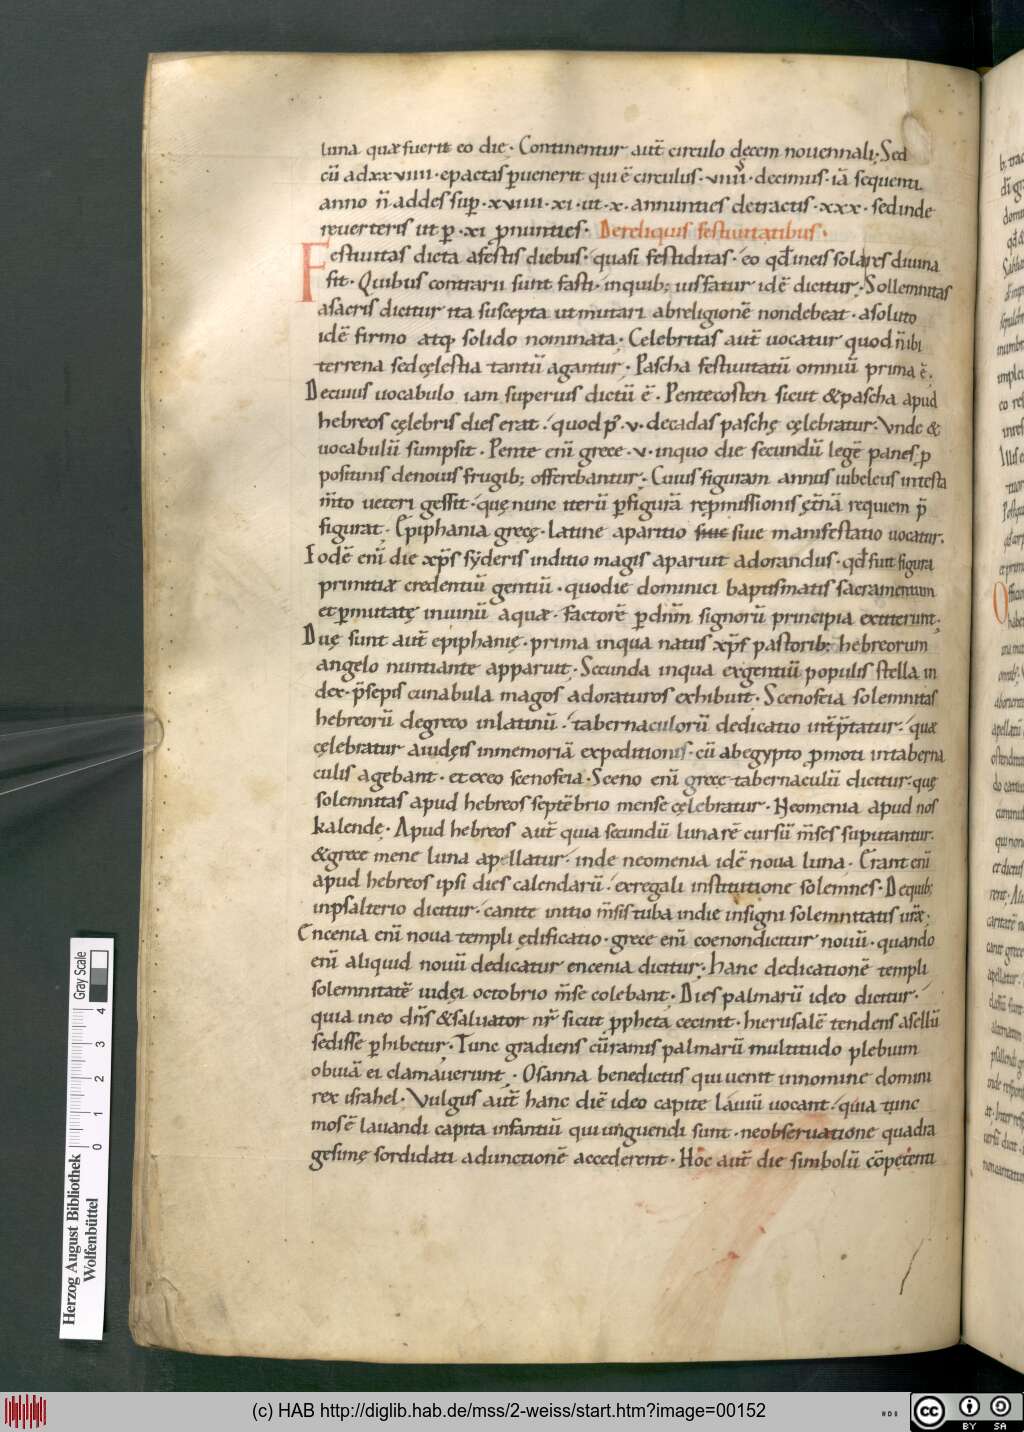 luna quæ fuerit eo die. Continentur aut̄ circulo dęcem nouennali; Sed
cū ad xxviiii. epactas ꝑuenerit qui ē circulus. viiii. decimus. iā sequenti
anno n̄ addes suꝑ. xviiii. xi. ut. x. annunties detractis. xxx. sed inde
reuerteris ut ꝑ. xi ꝓnunties. De reliquis festiuitatibus.
Festiuitas dicta a festis diebus. quasi festiditas. eo qd̄ in eis sola res diuina
sit. Quibus contrarii sunt fasti. in quib; ius fatur idē dicitur. Sollemnitas
a sacris dicitur ita suscepta ut mutari ab religionē non debeat. a soluto
idē firmo atq; solido nominata. Celebritas aut̄ uocatur quod n̄ ibi
terrena sed cęlestia tantū agantur. Pascha festiuitatū omniū prima ē.
De cuius uocabulo iam superius dictū ē. Pentecosten sicut & pascha apud
hebreos cęlebris dies erat. quod p̄. v. decadas paschę cęlebratur. Vnde &
uocabulū sumpsit. Pente eni̅ grece. v. in quo die secundū legē panes ꝓ
positiųnis de nouis frugib; offerebantur. Cuius figuram annus iubeleus in testa
m̄to ueteri gessit. quę nunc iterū ꝑ figurā rępmissionis ęt̄nā requiem p̄
figurat. Epiphania gręcę. Latine aparitio siue siue manifestatio uocatur.
Eodē eni̅ die xp̄s sẏderis inditio magis aparuit adorandus. qd̄ fuit figura
primitiæ credentiū gentiū. quo die dominici baptismatis sacramentum
et ꝑmutatę in uinū aquæ. factorē ꝑ dn̄m signorū principia extiterunt.
Duę sunt aut̄ epiphanię. prima in qua natus xp̄s pastorib; hebreorum
angelo nuntiante apparuit. Secunda in qua ex gentiū populis stella in
dex. p̄sepis cunabula magos adoraturos exhibuit. Scenofeia solemnitas
hebreorū de greco in latinū. tabernaculorū dedicatio int̄p̄tatur. quæ
cęlebratur a iudęis in memoriā expeditionis. cū ab egypto ꝓmoti in taberna
culis agebant. et ex eo scenofeia. Sceno eni̅ gręcę tabernaculū dicitur. quę
solemnitas apud hebreos septēbrio mense cęlebratur. Neomenia apud nos
kalendę. Apud hebreos aut̄ quia secundū lunarē cursū m̄ses suputantur.
& grece mene luna apellatur. inde neomenia idē noua luna. Erant eni̅
apud hebreos ipsi dies calendarū. ex regali institutione solemnes. De quib;
in psalterio dicitur. canite initio m̄sis tuba in die insigni solemnitatis ur̄æ;
Encenia eni̅ noua templi ędificatio. grece eni̅ coenon dicitur nouū. quando
eni̅ aliquid nouū dedicatur encenia dicitur. hanc dedicationē templi
solemnitatē iudęi octobrio m̄se colebant. Dies palmarū ideo dicitur.
quia in eo dn̄s & saluator nr̄ sicut ꝓpheta cecinit. hierusalē tendens asellū
sedisse ꝑhibetur. Tunc gradiens cū ramis palmarū multitudo plebium
obuiā ei clamauerunt. Osanna benedictus qui uenit in nomine domini
rex israhel. Vulgus aut̄ hanc diē ideo capite lauiū uocant. quia tunc
mosē lauandi capita infantiū qui unguendi sunt. ne obseruatione quadra
gesimę sordidati ad unctionē accederent. Hoc aut̄ die simbolū cōpetenti
Herzog August Bibliothek
Wolfenbüttel
0 1 2 3 4
Gray Scale
(c) HAB http://diglib.hab.de/mss/2-weiss/start.htm?image=00152
cc BY SA